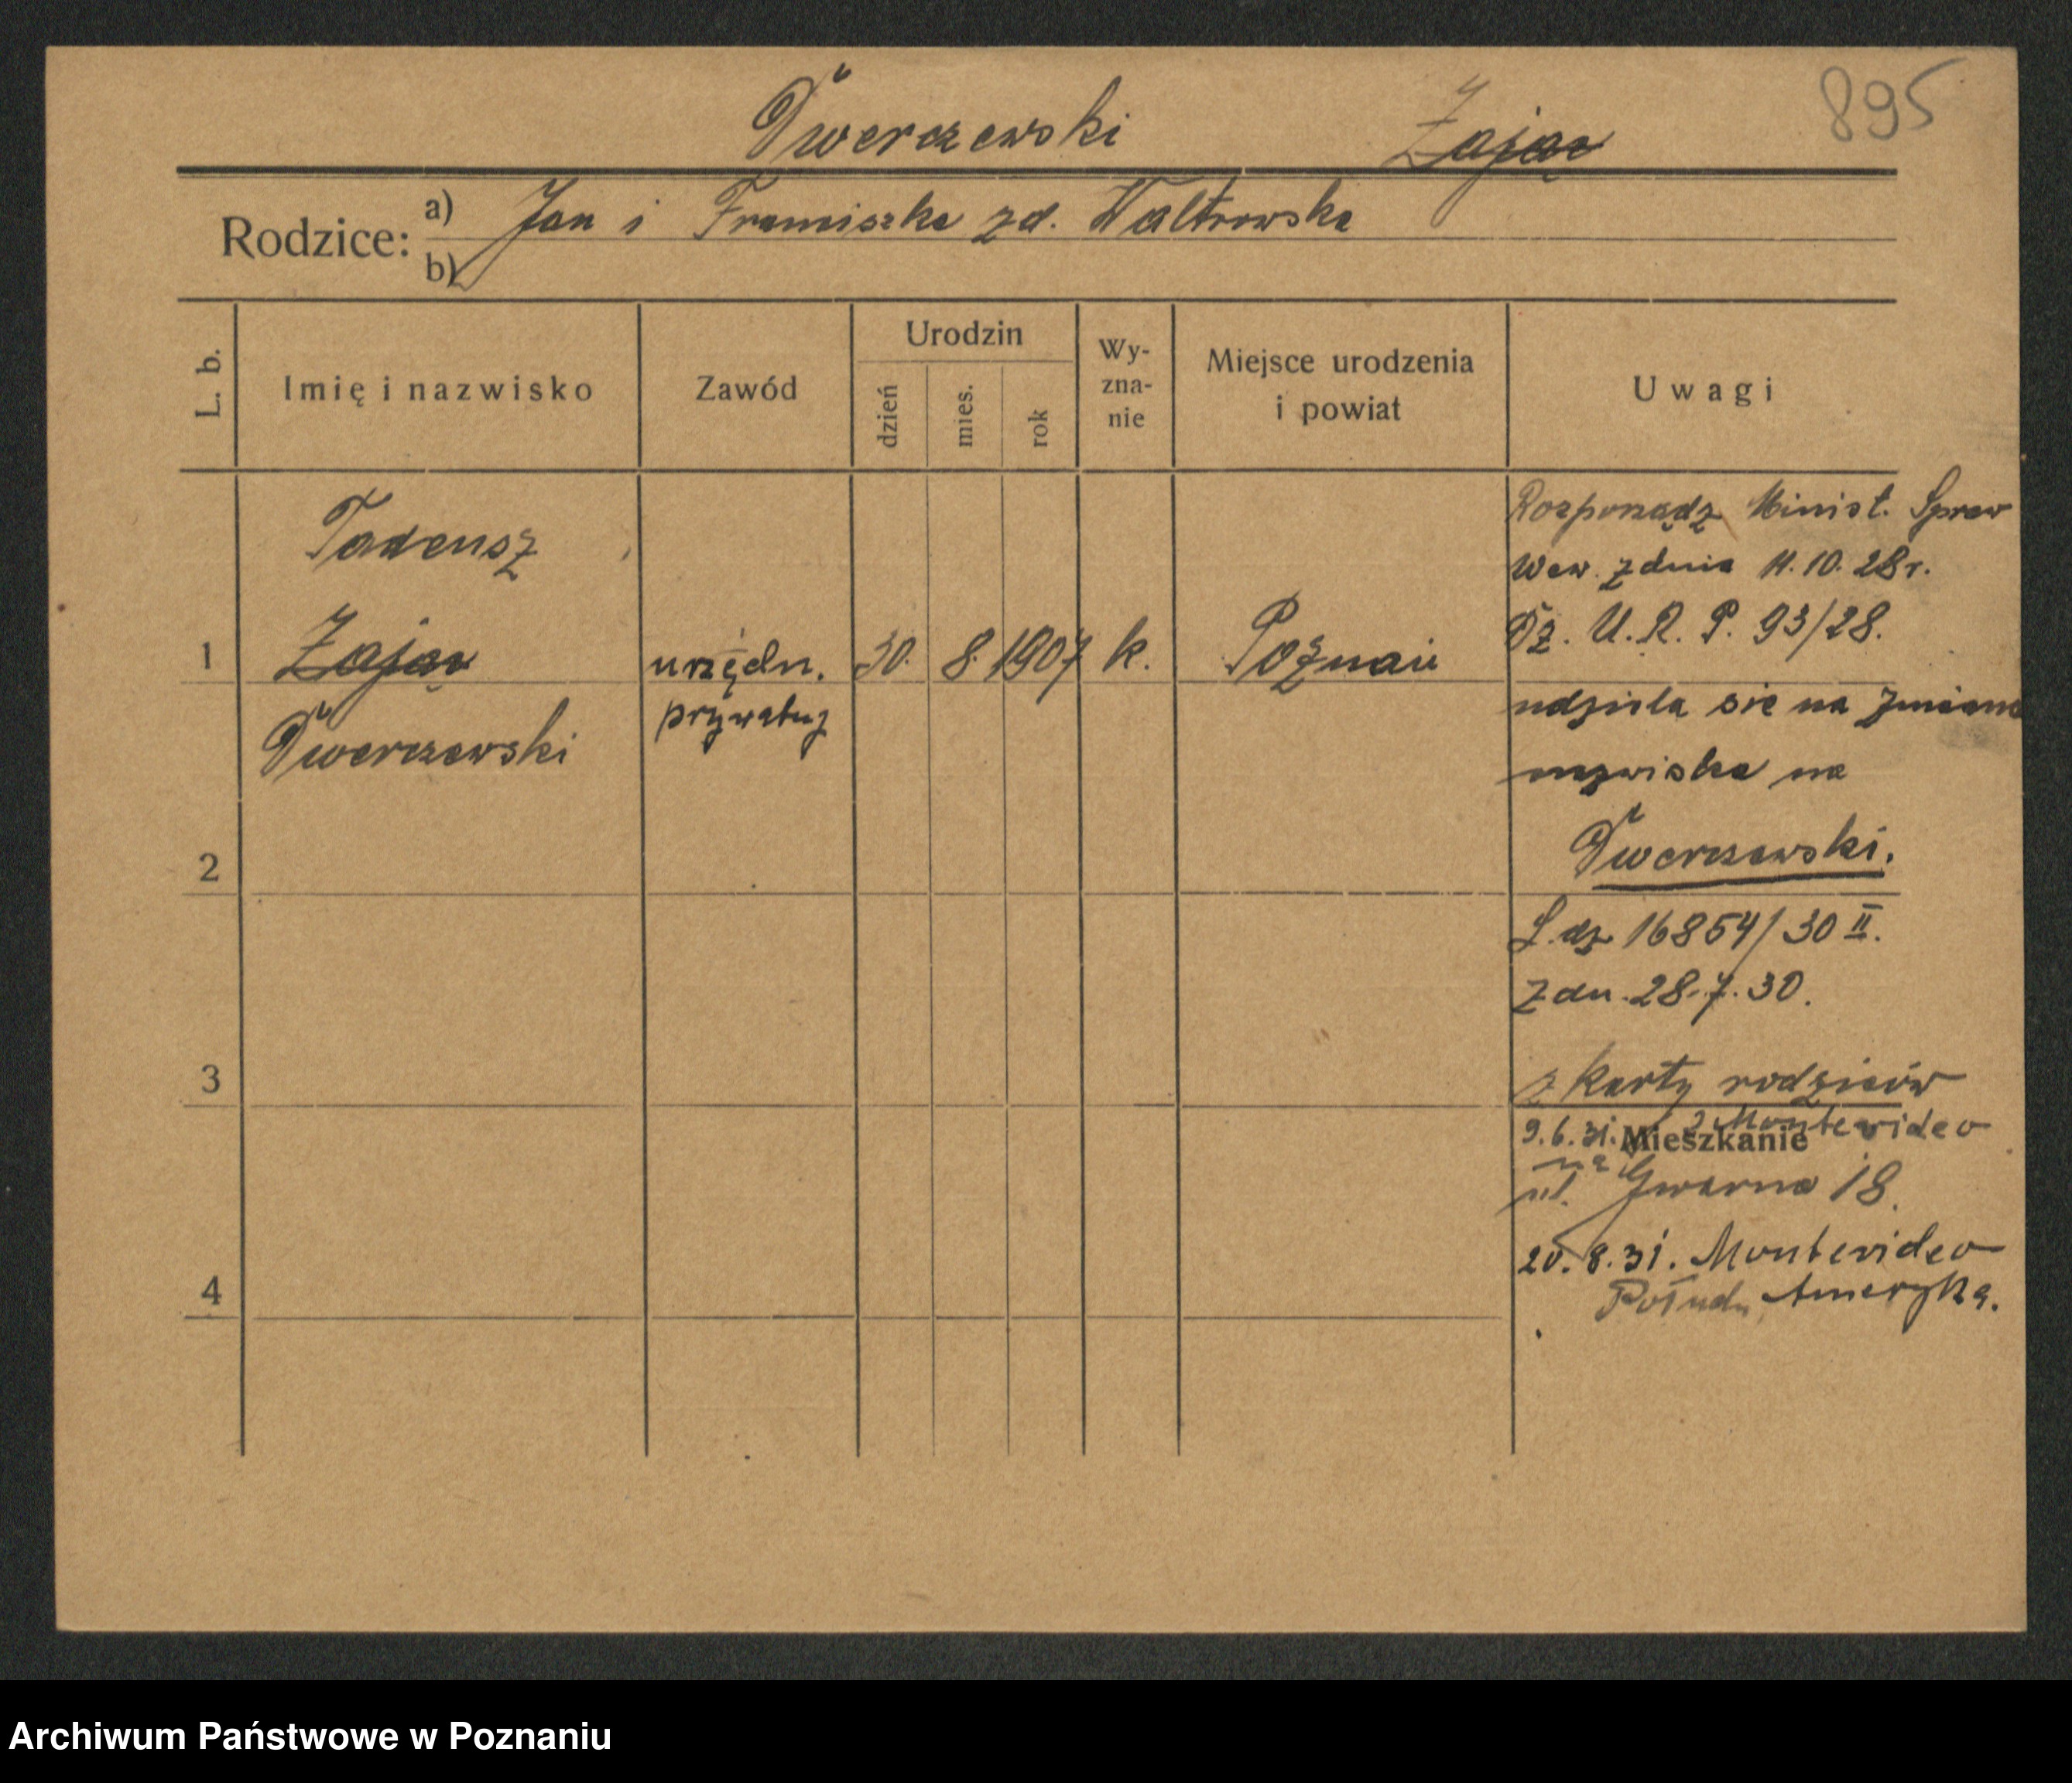 Dwerczewski Zając 895
Rodzice: a) Jan i Franciszka zd. Waltrowska
b)
L. b. Imię i nazwisko Zawód Urodzin dzień mies. rok Wy-zna-nie Miejsce urodzenia i powiat Uwagi
Tadeusz
1 Zając urzędn. 30. 8. 1907 k. Poznań
prywatny
Dwerczewski
2
3
4
Rozporządz. Minist. Spraw
Wew. z dnia 11.10.28 r.
Dz. U. R. P. 93/28.
udziela się na zmianę
nazwiska na
Dwerczewski.
L. dz. 16854/30 II.
z dn. 28.7.30.
z karty rodziców
9.6.31. z Montevideo
Mieszkanie
na
ul. Gwarna 18.
20.8.31. Montevideo
Połudn. Ameryka.
Archiwum Państwowe w Poznaniu